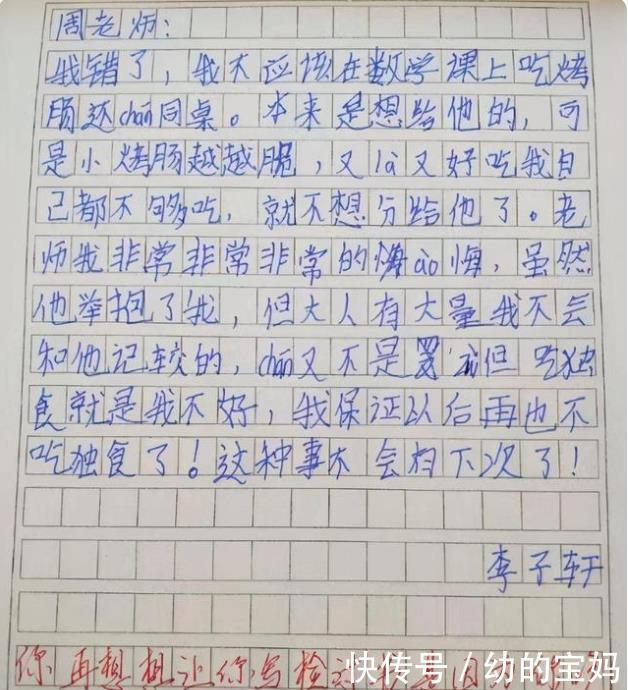 周老师：
我错了，我不应该在数学课上吃烤
肠还chán同桌。本来是想给他的，可
是小烤肠越越脆，又là又好吃我自
己都不够吃，就不想分给他了。老
师我非常非常非常的懊ào悔，虽然
他举抱了我，但大人有大量我不会
和他记较的，chán又不是罪 但吃独
食就是我不好，我保证以后再也不
吃独食了！这种事不会有下次了！
李子轩
你再想想让你写检讨
快传号/幼的宝妈